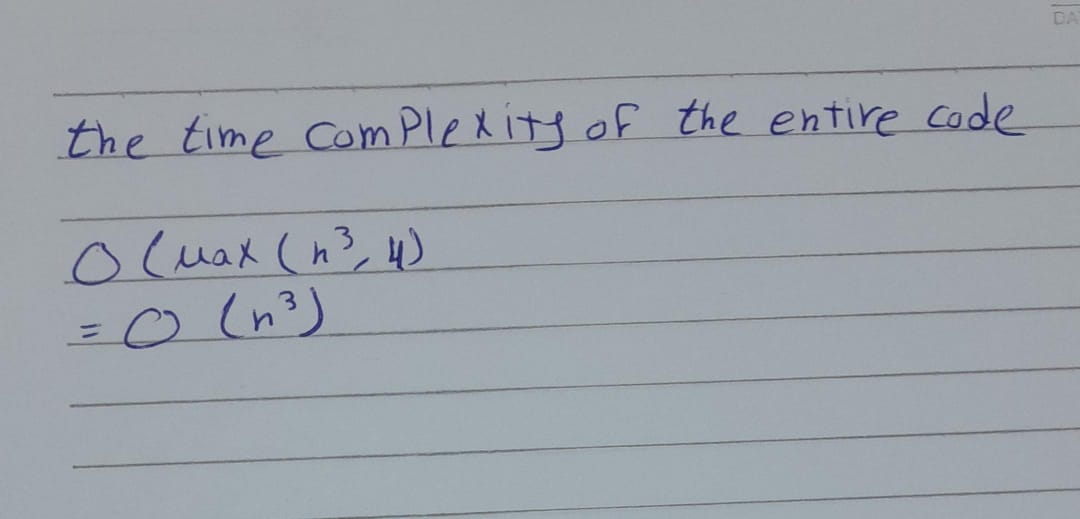 DA
the time complexity of the entire code
O (max (n³, 4)
= O (n³)